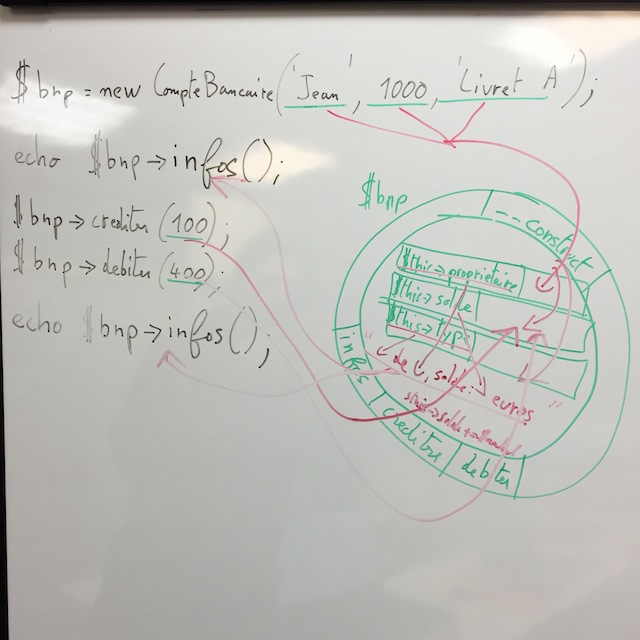 $bnp = new CompteBancaire('Jean', 1000, 'Livret A');
echo $bnp→infos();
$bnp→crediter(100);
$bnp→debiter(400);
echo $bnp→infos();
$bnp
__construct
$this→proprietaire
$this→solde
$this→type
" de
, solde:
euros "
infos
crediter
debiter